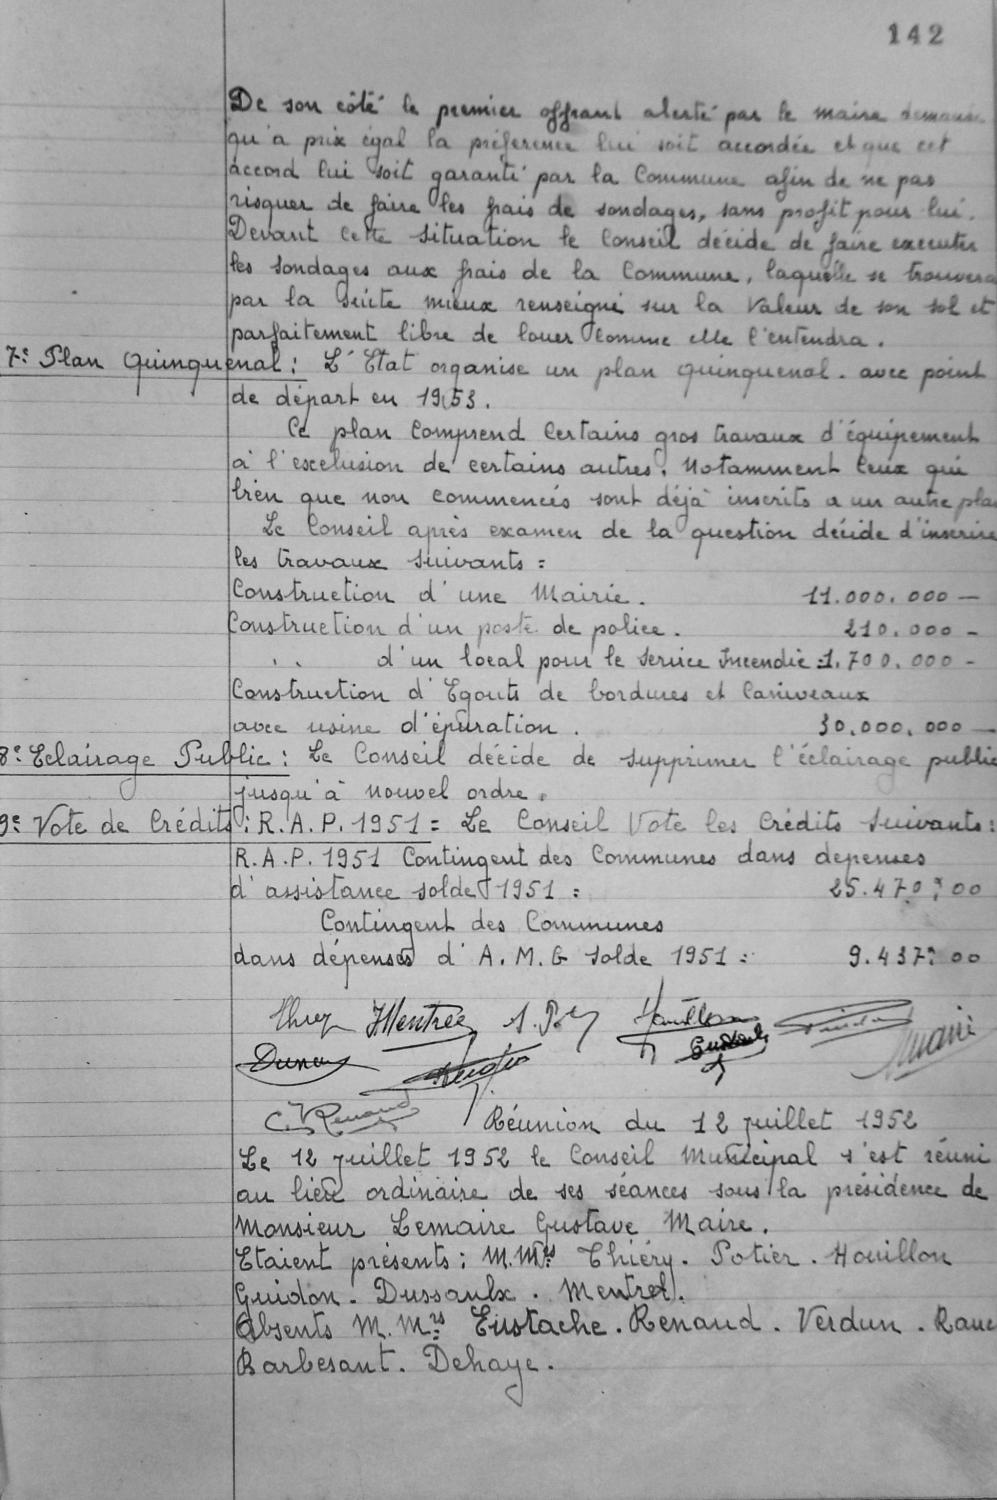 142
De son côté le premier offrant alerté par le maire demande
qu'à prix égal la préférence lui soit accordée et que cet
accord lui soit garanti par la Commune afin de ne pas
risquer de faire les frais de sondages, sans profit pour lui.
Devant cette situation le Conseil décide de faire executer
les sondages aux frais de la Commune, laquelle se trouvera
par la suite mieux renseigné sur la Valeur de son sol et
parfaitement libre de louer comme elle l'entendra.
7e Plan Quinquenal : L'Etat organise un plan quinquenal. avec point
de départ en 1953.
Ce plan Comprend Certains gros travaux d'équipement
à l'exclusion de certains autres. Notamment Ceux qui
bien que non commencés sont déjà inscrits a un autre plan
Le Conseil après examen de la question décide d'inscrire
les travaux suivants :
Construction d'une Mairie. 11.000.000 —
Construction d'un poste de police. 210.000 -
. . d'un local pour le service Incendie : 1.700.000 -
Construction d'Egouts de bordures et Caniveaux
avec usine d'épuration. 30.000.000 —
8e Eclairage Public : Le Conseil décide de supprimer l'éclairage public
jusqu'à nouvel ordre.
9e Vote de Crédits : R.A.P. 1951 = Le Conseil Vote les Crédits suivants :
R.A.P. 1951 Contingent des Communes dans depenses
d'assistance solde 1951 : 25.470 : 00
Contingent des Communes
dans dépenses d'A.M.G solde 1951 : 9.437 : 00
Mentrée Houillon
Eustache
C. Renaud
Réunion du 12 juillet 1952
Le 12 juillet 1952 le Conseil Municipal s'est réuni
au lieu ordinaire de ses séances sous la présidence de
Monsieur Lemaire Gustave Maire.
Etaient présents : M.Mrs Thiéry. Potier. Houillon
Guidon. Dussaulx. Mentrel.
Absents M.Mrs Eustache. Renaud. Verdun.
Barbesant. Dehaye.